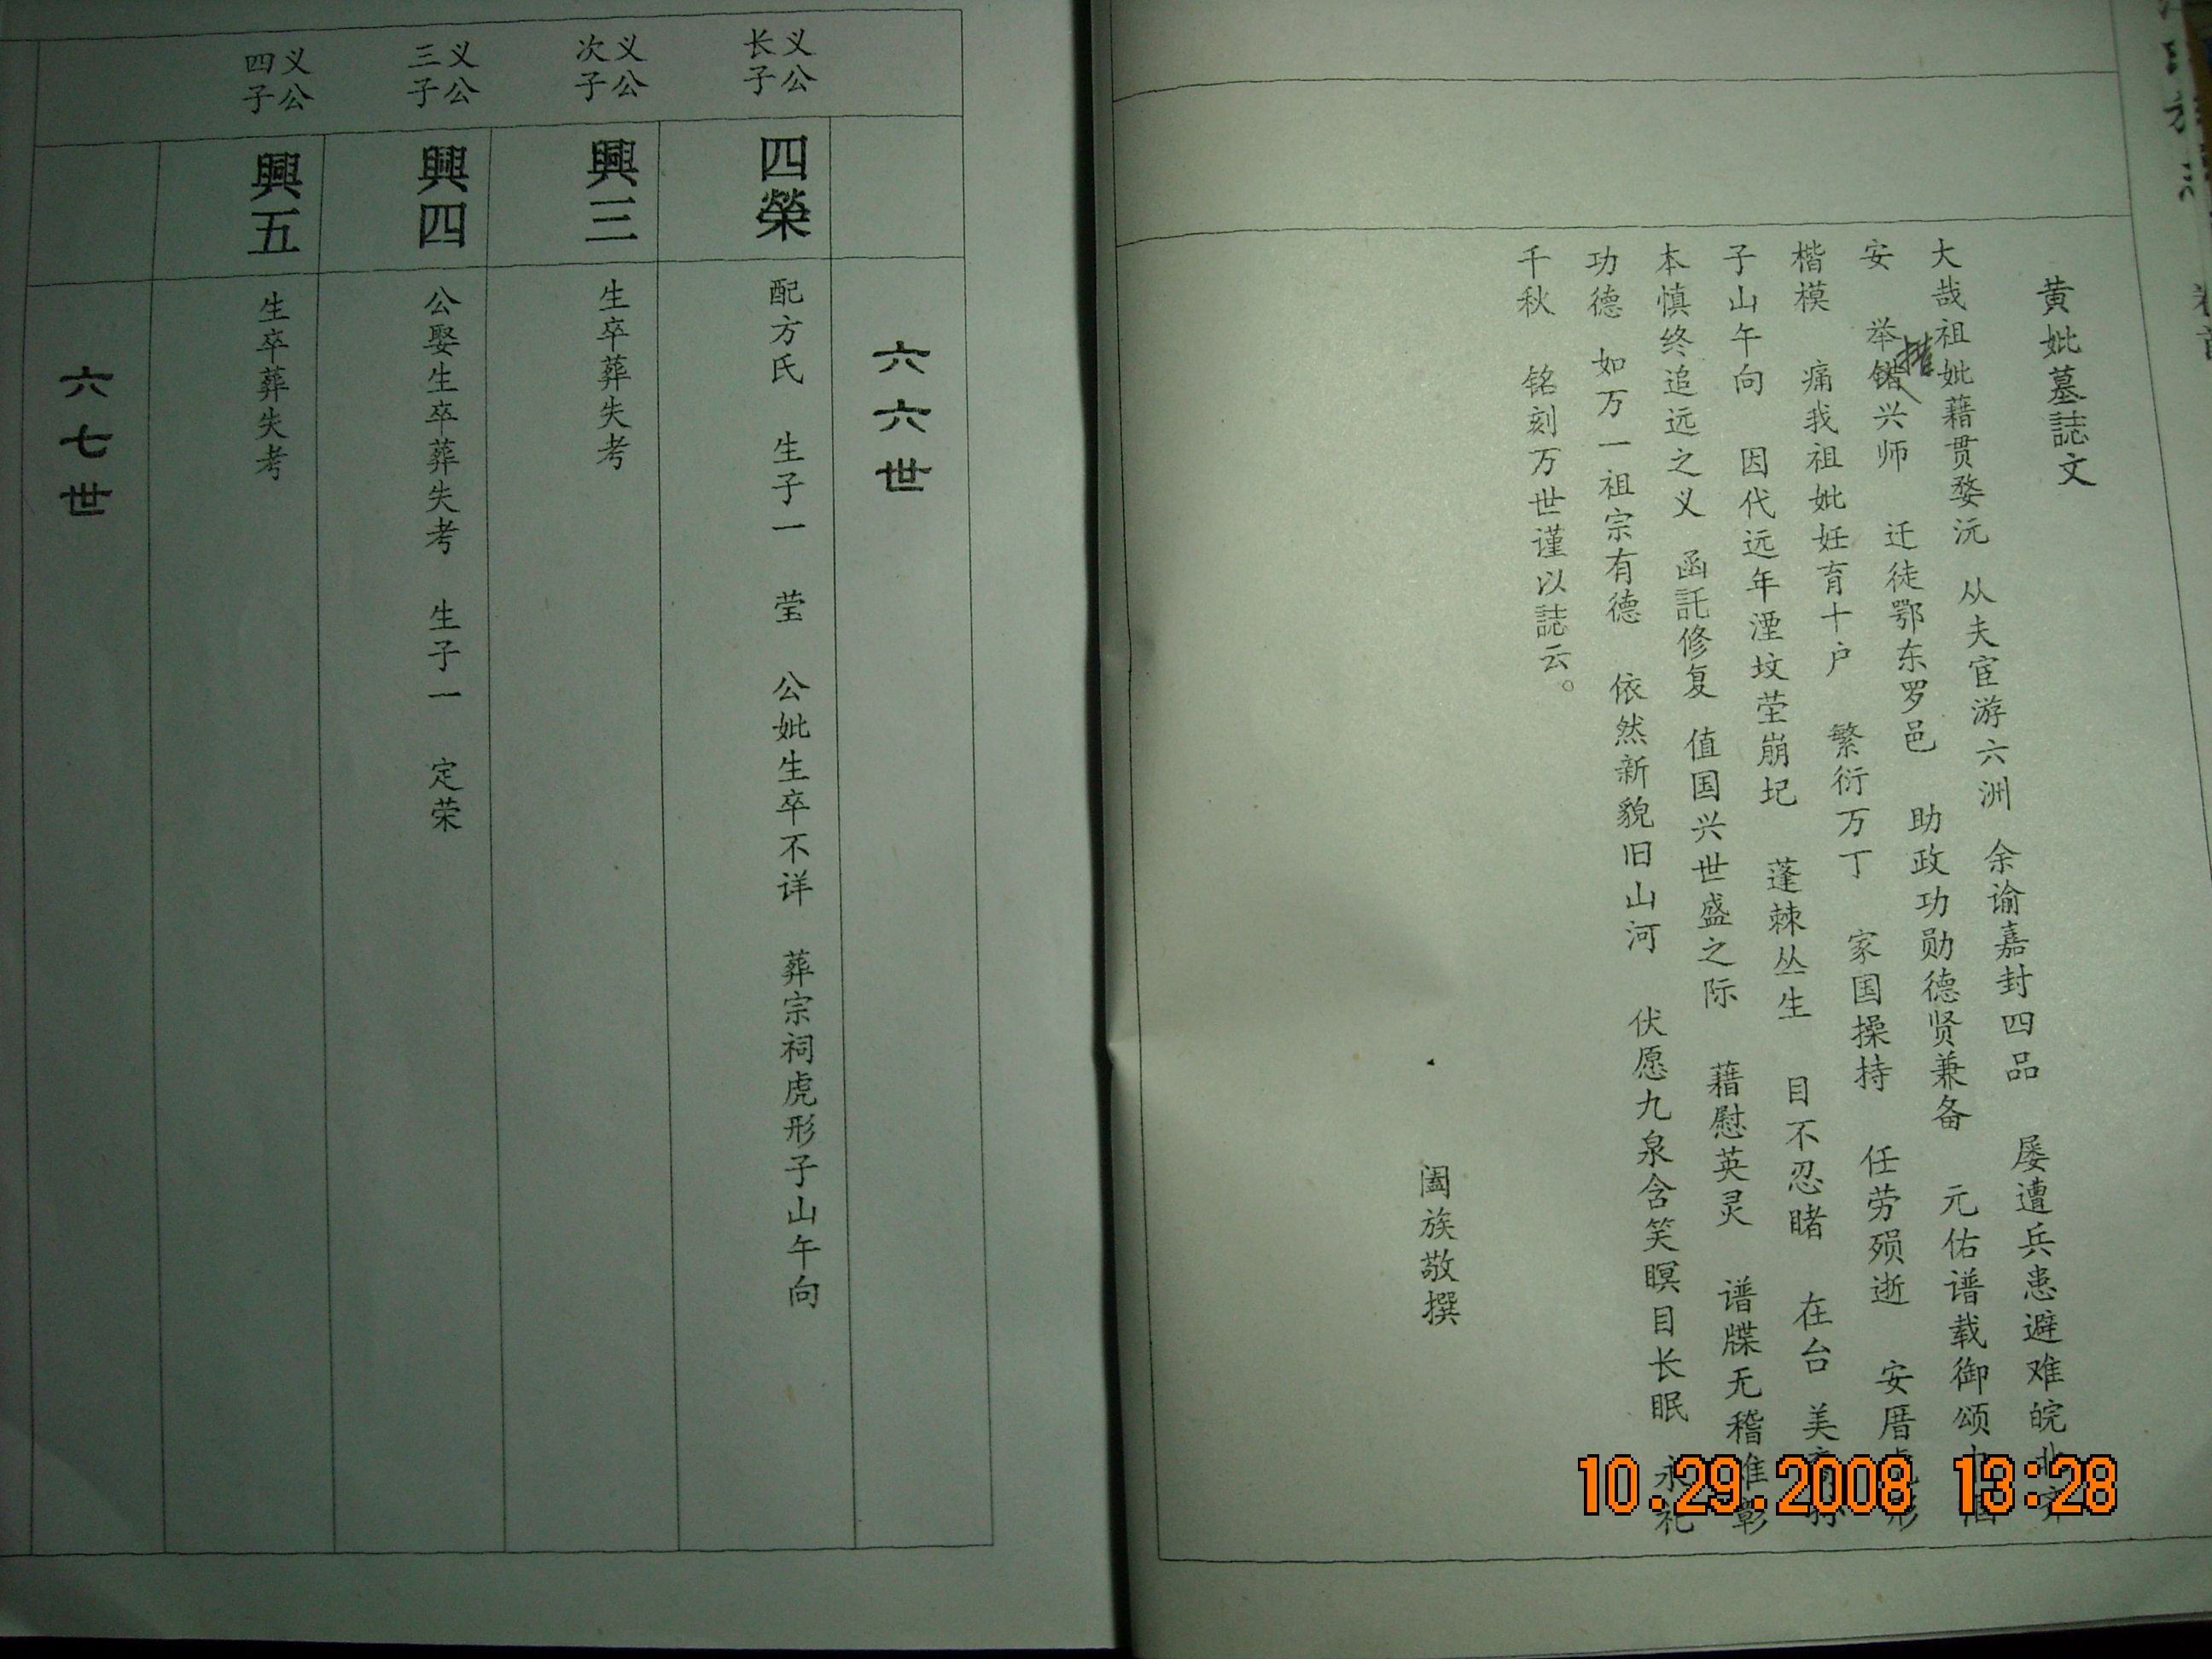 黄妣墓誌文
大哉祖妣藉贯婺沅 从夫宦游六洲 余谕嘉封四品 屡遭兵患避难皖北
安 举错兴师 迁徒鄂东罗邑 助政功勋德贤兼备 元佑谱载御颂
措
楷模 痛我祖妣妊育十户 繁衍万丁 家国操持 任劳殒逝 安厝虎形
子山午向 因代远年湮坟茔崩圮 蓬棘丛生 目不忍睹 在台 美
本慎终追远之义 函託修复 值国兴世盛之际 藉慰英灵 谱牒无稽难彰
功德 如万一祖宗有德 依然新貌旧山河 伏愿九泉含笑瞑目长眠 永礼
千秋 铭刻万世谨以誌云。
阖族敬撰
六六世
义公长子
四榮
配方氏 生子一 莹 公妣生卒不详 葬宗祠虎形子山午向
义公次子
興三
生卒葬失考
义公三子
興四
公娶生卒葬失考 生子一 定荣
义公四子
興五
生卒葬失考
六七世
10.29.2008 13:28